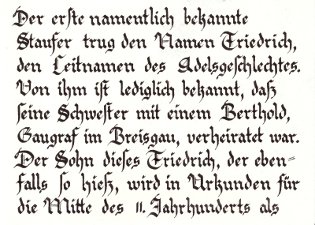 Der erste namentlich bekannte
Staufer trug den Namen Friedrich,
den Leitnamen des Adelsgeschlechtes.
Von ihm ist lediglich bekannt, daß
seine Schwester mit einem Berthold,
Gaugraf im Breisgau, verheiratet war.
Der Sohn dieses Friedrich, der eben=
falls so hieß, wird in Urkunden für
die Mitte des 11. Jahrhunderts als